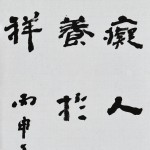 癡人
養於
祥
丙申